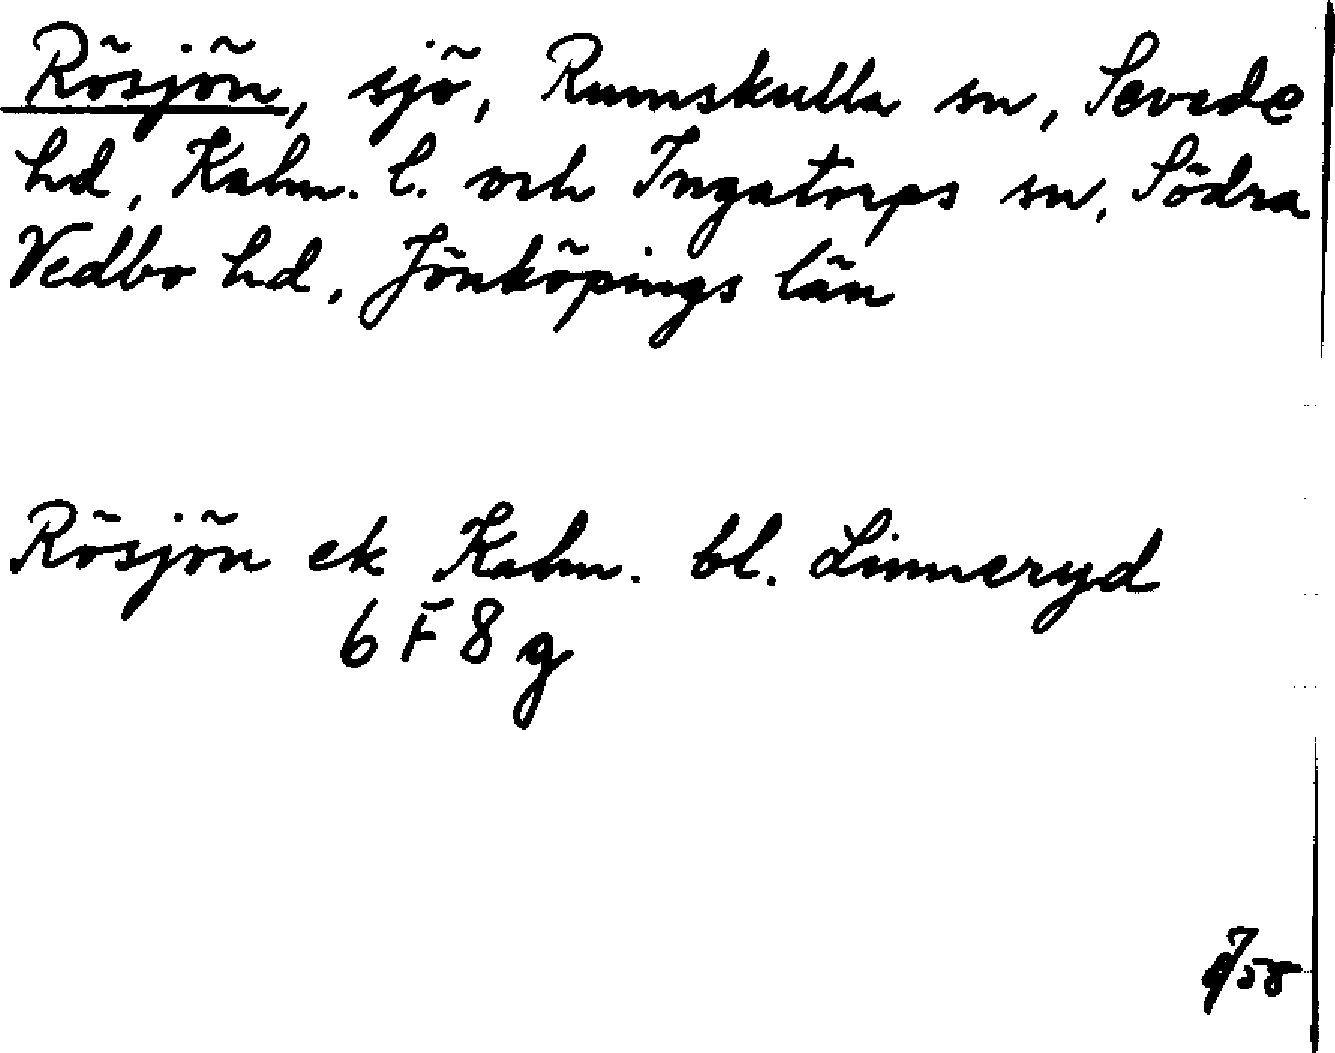 Rösjön, sjö, Rumskulla sn, Sevede
hd, Kalm. l. och Ingatorps sn, Södra
Vedbo hd, Jönköpings län
Rösjön ek Kalm. bl. Linneryd
6 F 8 g